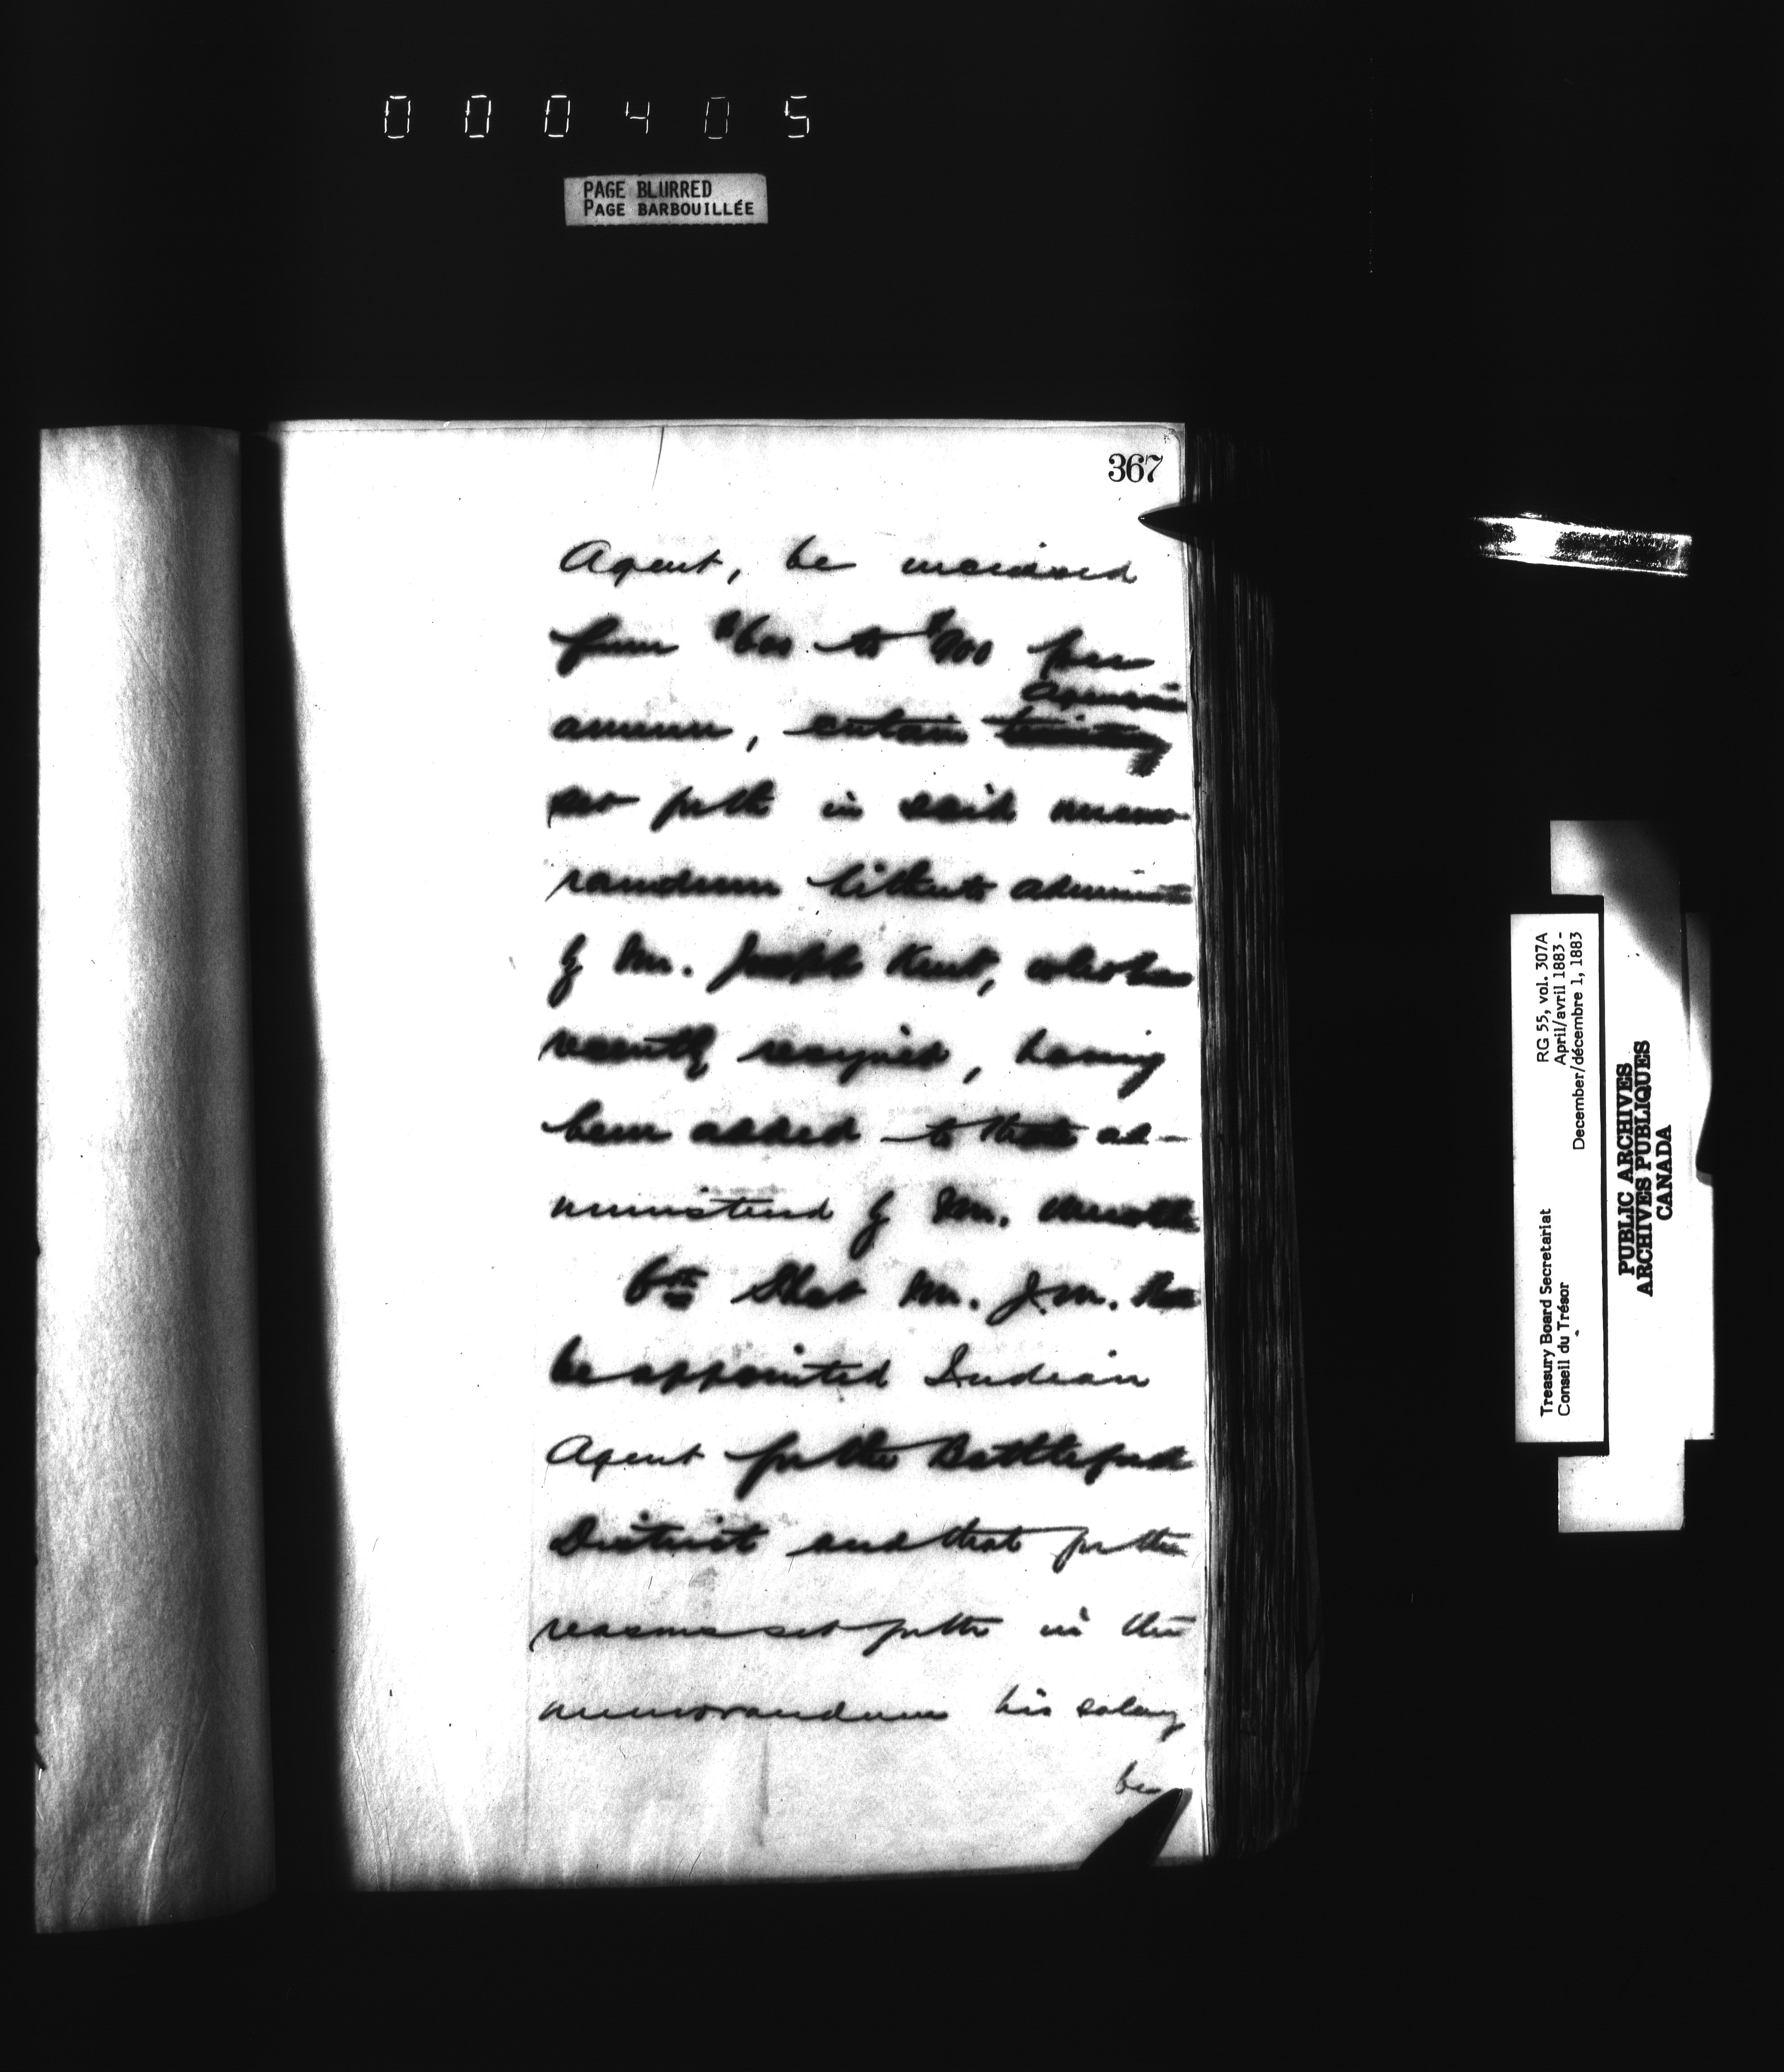 000405
PAGE BLURRED
PAGE BARBOUILLÉE
367
Agent, be increased
from $600 to $900 per
Agencies
annum, certain
set forth in said memo-
randum hitherto administered
by Mr. Joseph Kent, who has
recently resigned, having
been added to those ad-
ministered by Mr.
6th That Mr. J. M. Rae
be appointed Indian
Agent for the Battleford
District and that for the
reasons set forth in the
memorandum his salary
be
RG 55, vol. 307A
April/avril 1883 -
December/décembre 1, 1883
Treasury Board Secretariat
Conseil du Trésor
PUBLIC ARCHIVES
ARCHIVES PUBLIQUES
CANADA